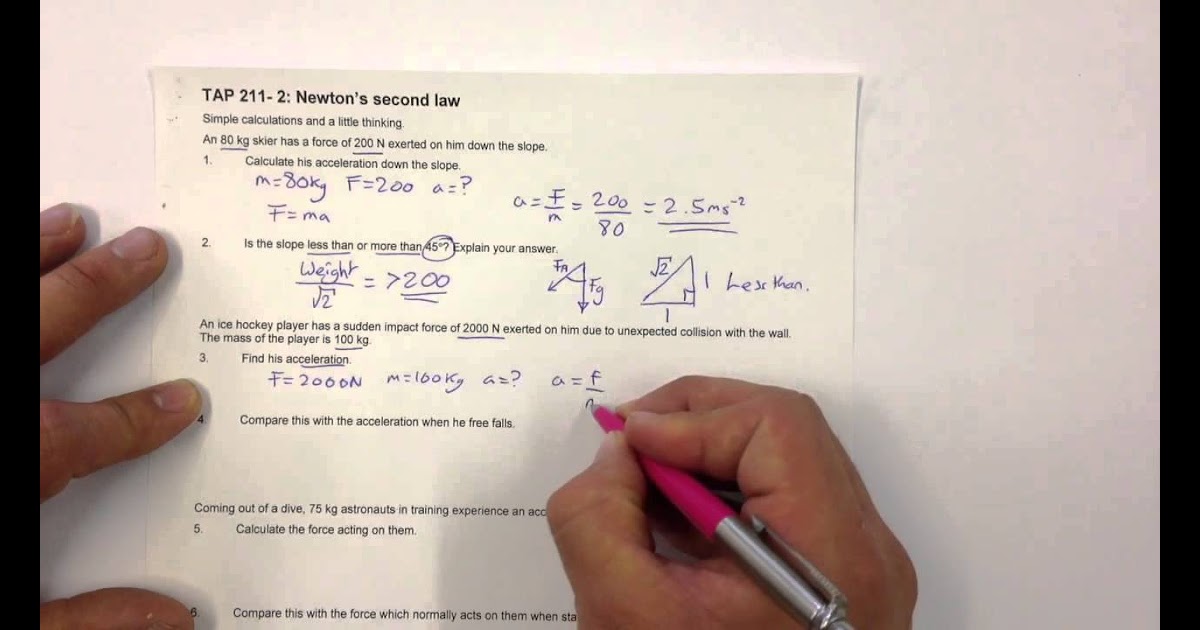 TAP 211- 2: Newton's second law
Simple calculations and a little thinking.
An 80 kg skier has a force of 200 N exerted on him down the slope.
1. Calculate his acceleration down the slope.
m=80kg F=200 a=?
F=ma
a = F/m = 200/80 = 2.5ms⁻²
2. Is the slope less than or more than 45°? Explain your answer.
Weight/√2 = >200
FA Fg
√2 1 Less than.
1
An ice hockey player has a sudden impact force of 2000 N exerted on him due to unexpected collision with the wall.
The mass of the player is 100 kg.
3. Find his acceleration.
F=2000N m=100kg a=? a = f/
4. Compare this with the acceleration when he free falls.
Coming out of a dive, 75 kg astronauts in training experience an
5. Calculate the force acting on them.
6. Compare this with the force which normally acts on them when